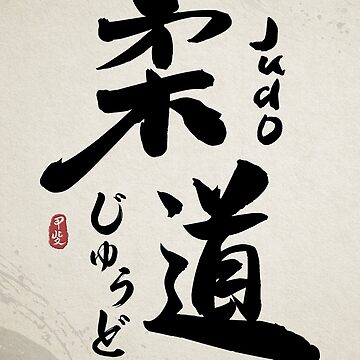 柔道
Judo
じゅうど
甲斐